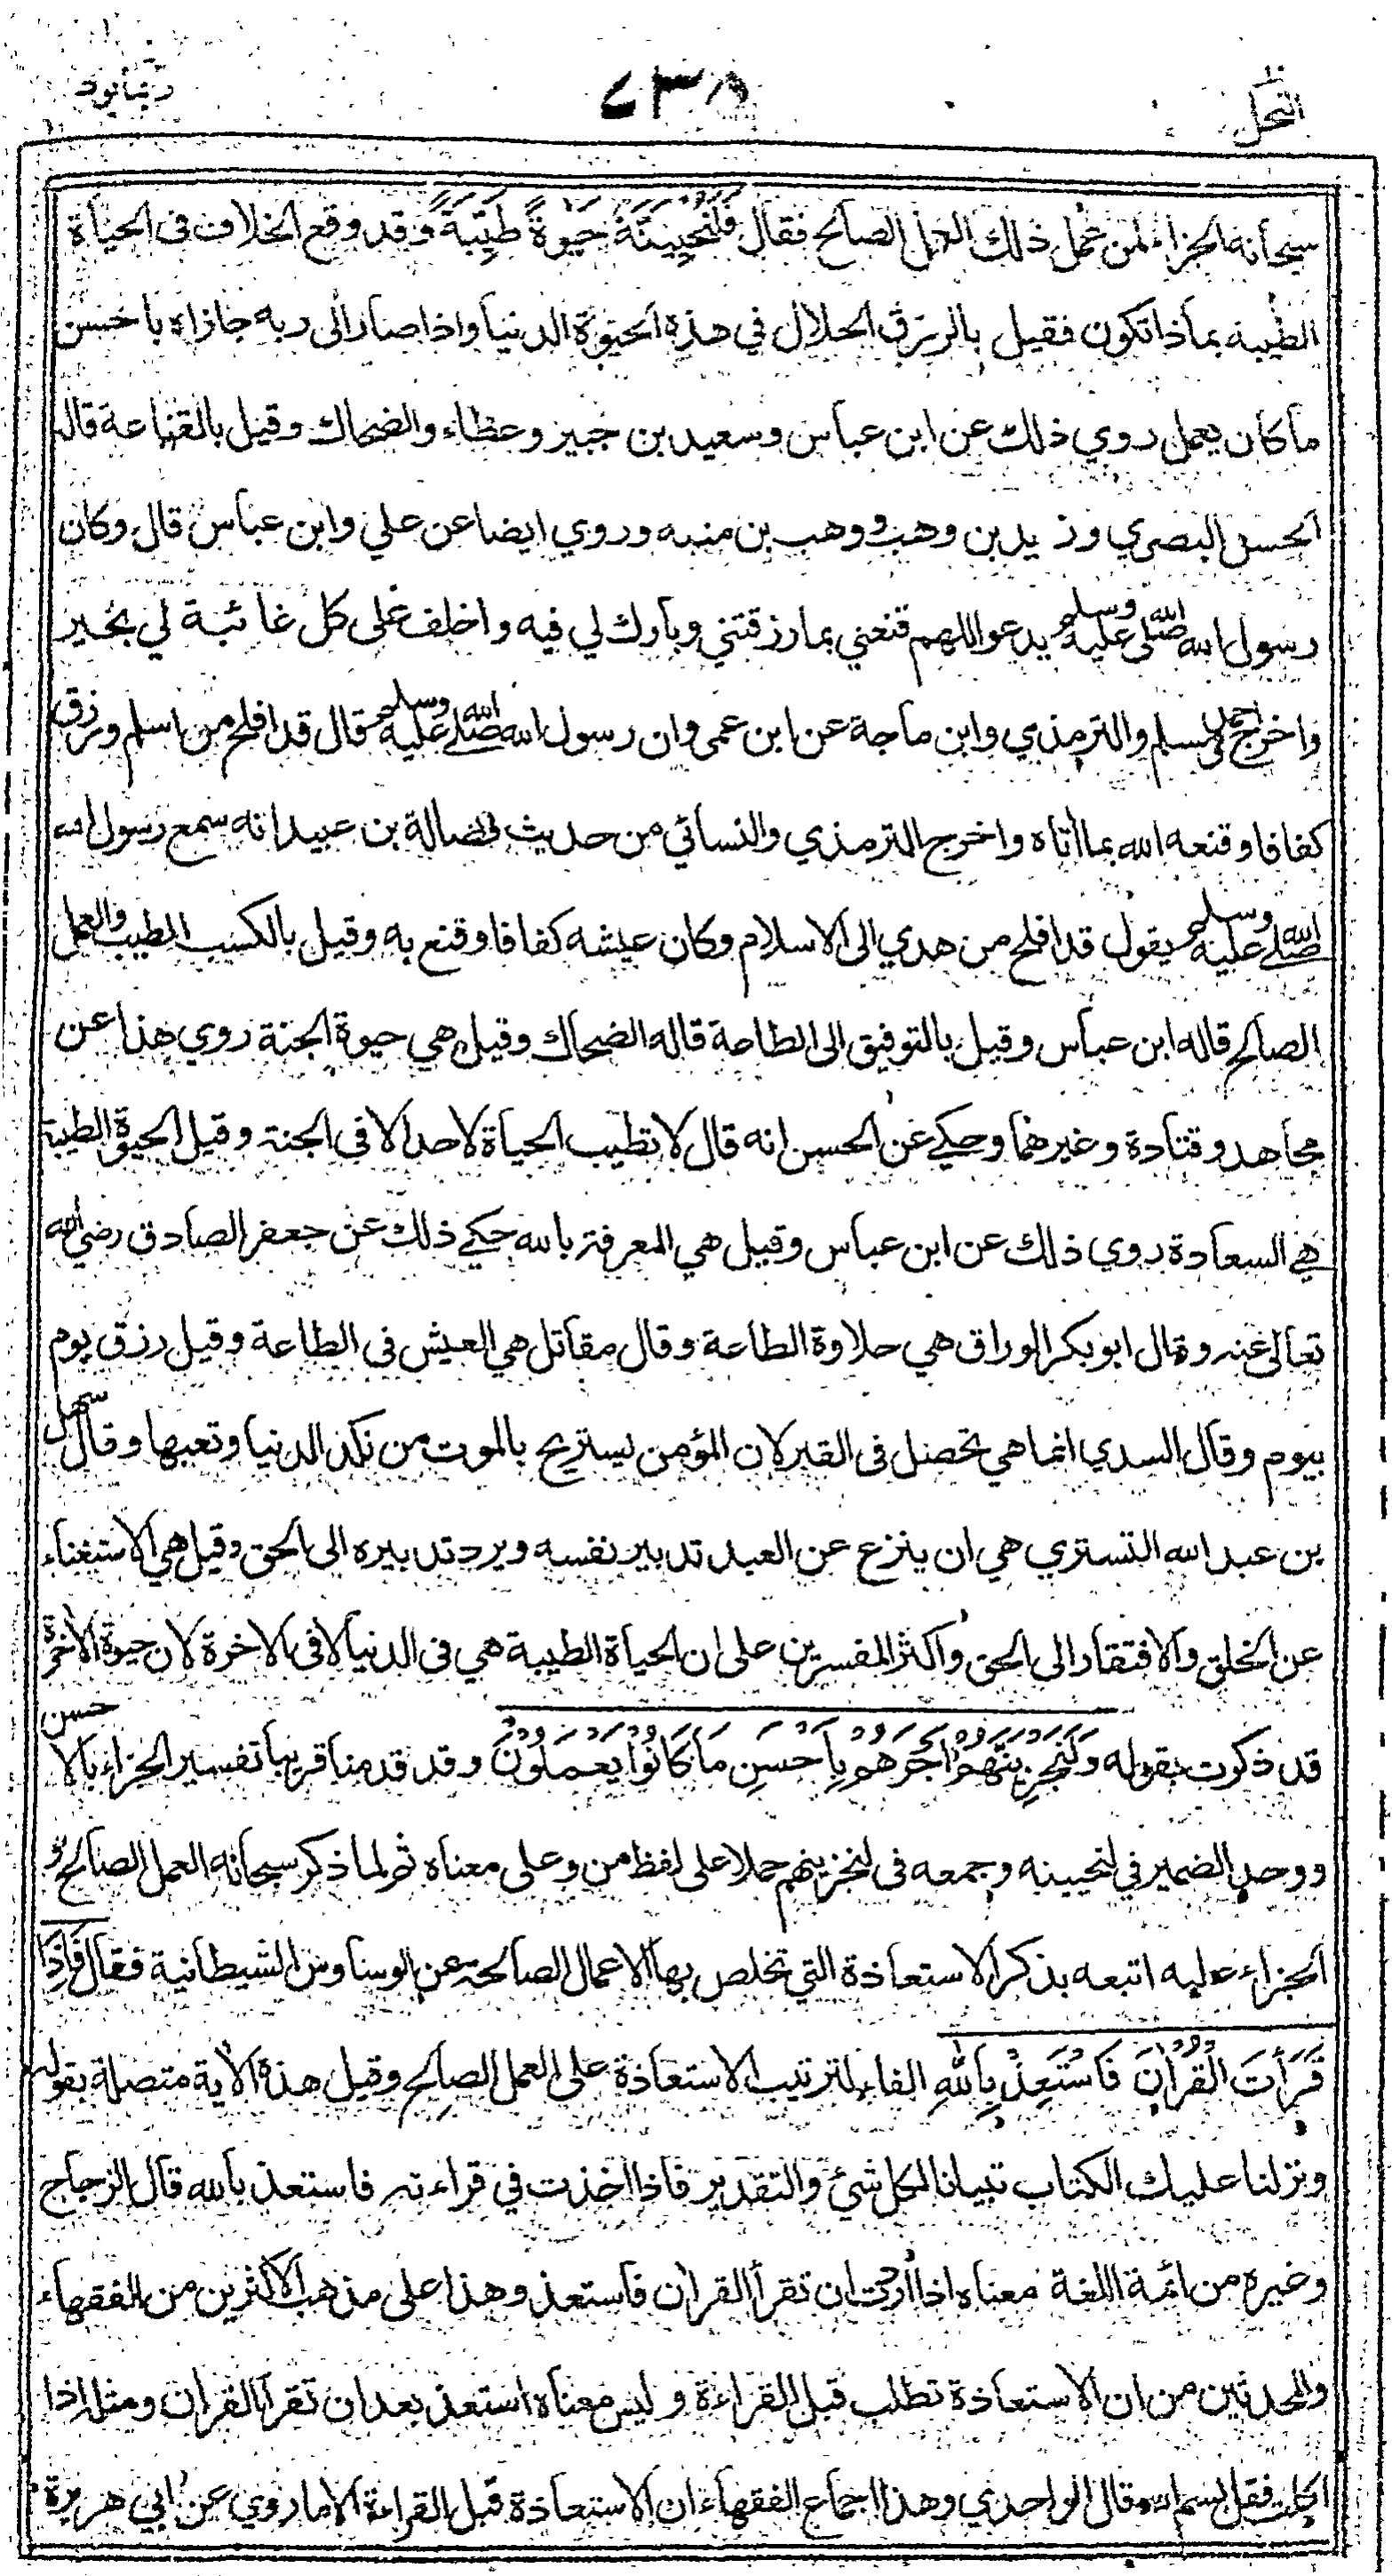 النحل ٤٣٨ ربما ١٤
سبحانه الجزاء لمن عمل ذلك العمل الصالح فقال فَلَنُحْيِيَنَّهُ حَيٰوةً طَيِّبَةً وقد وقع الخلاف فى الحياة
الطيبة بماذا تكون فقيل بالرزق الحلال في هذه الحيوة الدنيا واذا صار الى ربه جازاه باحسن
ما كان يعمل روي ذلك عن ابن عباس وسعيد بن جبير وعطاء والضحاك وقيل بالقناعة قاله
الحسن البصري وزيد بن وهب ووهب بن منبه وروي ايضا عن علي وابن عباس قال وكان
رسول الله صلى الله عليه وسلم يدعو اللهم قنعني بما رزقتني وبارك لي فيه واخلف على كل غائبة لي بخير
واخرج احمد ومسلم والترمذي وابن ماجة عن ابن عمر وان رسول الله صلى الله عليه وسلم قال قد افلح من اسلم ورزق
كفافا وقنعه الله بما اتاه واخرج الترمذي والنسائي من حديث فضالة بن عبيد انه سمع رسول الله
صلى الله عليه وسلم يقول قد افلح من هدي الى الاسلام وكان عيشه كفافا وقنع به وقيل بالكسب الطيب والعمل
الصالح قاله ابن عباس وقيل بالتوفيق الى الطاعة قاله الضحاك وقيل هي حيوة الجنة روي هذا عن
مجاهد وقتادة وغيرهما وحكي عن الحسن انه قال لا تطيب الحياة لاحد الا فى الجنة وقيل الحيوة الطيبة
هي السعادة روي ذلك عن ابن عباس وقيل هي المعرفة بالله حكي ذلك عن جعفر الصادق رضي الله
تعالى عنه وقال ابو بكر الوراق هي حلاوة الطاعة وقال مقاتل هي العيش فى الطاعة وقيل رزق يوم
بيوم وقال السدي انما هي تحصل فى القبر لان المؤمن يستريح بالموت من نكد الدنيا وتعبها وقال سهل
بن عبد الله التستري هي ان ينزع عن العبد تدبير نفسه ويرد تدبيره الى الحق وقيل هي الاستغناء
عن الخلق والافتقار الى الحق واكثر المفسرين على ان الحياة الطيبة هي فى الدنيا لا فى الاخرة لان حيوة الاخرة
قد ذكرت بقوله وَلَنَجْزِيَنَّهُمْ اَجْرَهُمْ بِاَحْسَنِ مَا كَانُوْا يَعْمَلُوْنَ وقد قدمنا قريبا تفسير الجزاء بالاحسن
ووحد الضمير في لنحيينه وجمعه فى لنجزينهم حملا على لفظ من وعلى معناه ثم لما ذكر سبحانه العمل الصالح و
الجزاء عليه اتبعه بذكر الاستعاذة التي تخلص بها الاعمال الصالحة عن الوساوس الشيطانية فقال فَاِذَا
قَرَأْتَ الْقُرْاٰنَ فَاسْتَعِذْ بِاللّٰهِ الفاء لترتيب الاستعاذة على العمل الصالح وقيل هذه الاية متصلة بقوله
ونزلنا عليك الكتاب تبيانا لكل شئ والتقدير فاذا اخذت في قراءته فاستعذ بالله قال الزجاج
وغيره من ائمة اللغة معناه اذا اردت ان تقرأ القران فاستعذ وهذا على مذهب الاكثرين من الفقهاء
والمحدثين من ان الاستعاذة تطلب قبل القراءة وليس معناه استعذ بعد ان تقرأ القران ومثله اذا
اكلت فقل بسم الله قال الواحدي وهذا اجماع الفقهاء ان الاستعاذة قبل القراءة الا ما روي عن ابي هريرة